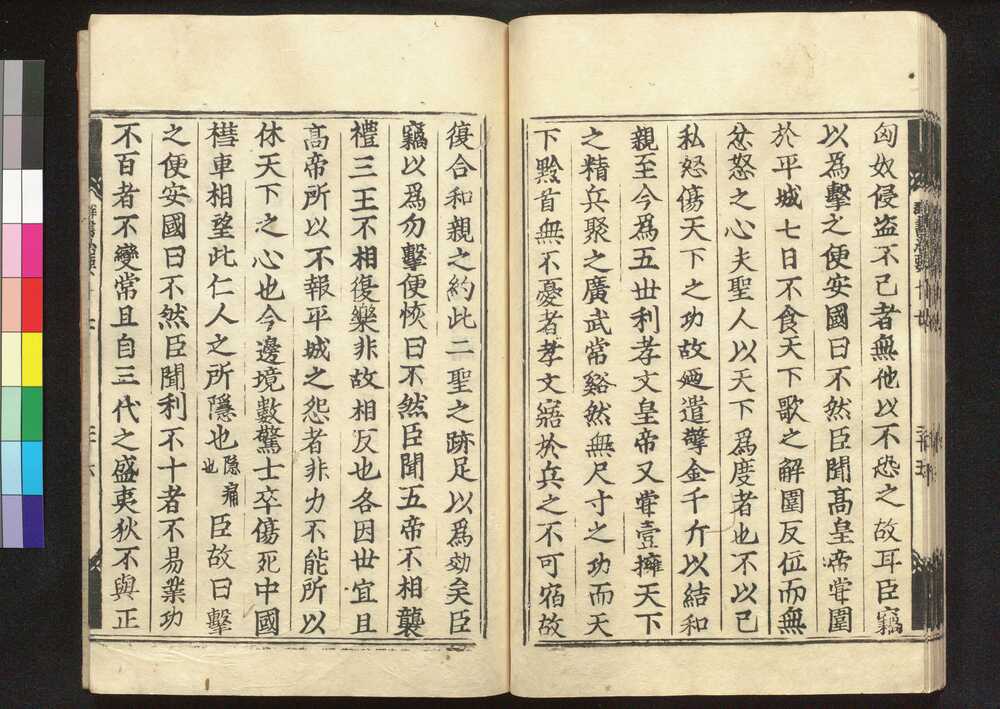 匈奴侵盗不已者無他以不恐之故耳臣竊
以爲擊之便安國曰不然臣聞髙皇帝甞圍
於平城七日不食天下歌之解圍反位而無
忿怒之心夫聖人以天下爲度者也不以己
私怒傷天下之功故廼遣擎金千斤以結和
親至今爲五丗利孝文皇帝又甞壹擁天下
之精兵聚之廣武常谿然無尺寸之功而天
下黔首無不憂者孝文寤於兵之不可宿故
復合和親之約此二聖之跡足以爲効矣臣
竊以爲勿擊便恢曰不然臣聞五帝不相襲
禮三王不相復樂非故相反也各因世宜且
髙帝所以不報平城之怨者非力不能所以
休天下之心也今邊境數驚士卒傷死中國
槥車相望此仁人之所隱也隱痛也臣故曰擊
之便安國曰不然臣聞利不十者不易業功
不百者不變常且自三代之盛夷狄不與正